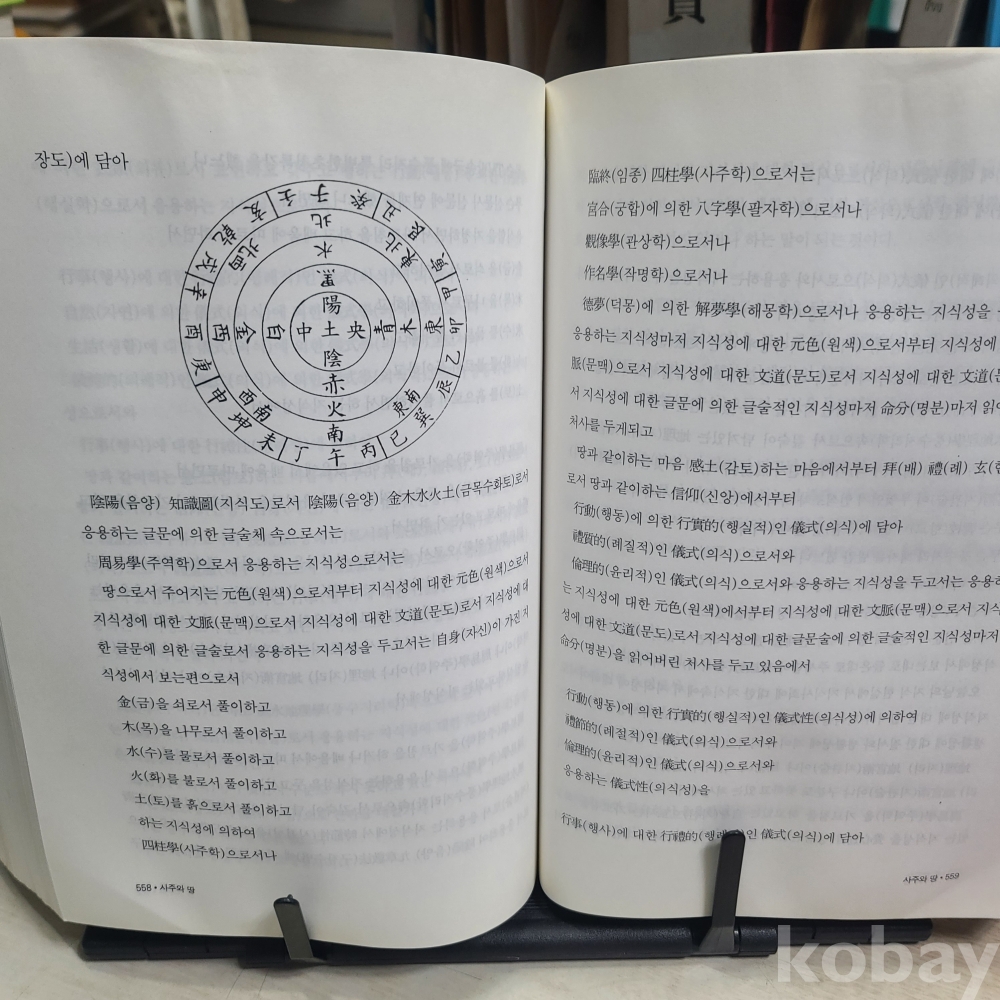 장도)에 담아
子
壬 癸
亥 丑
乾 艮
戌 寅
辛 甲
酉 卯
庚 乙
申 辰
坤 巽
未 巳
丁 丙
午
北
北西 東北
西 東
西南 東南
南
水
黑
金 白 中 土 央 青 木
陽
陰
赤
火
陰陽(음양) 知識圖(지식도)로서 陰陽(음양) 金木水火土(금목수화토)로서
응용하는 글문에 의한 글술체 속으로서는
周易學(주역학)으로서 응용하는 지식성으로서는
땅으로서 주어지는 元色(원색)으로서부터 지식성에 대한 元色(원색)으로서
지식성에 대한 文脈(문맥)으로서 지식성에 대한 文道(문도)로서 지식성에 대
한 글문에 의한 글술로서 응용하는 지식성을 두고서는 自身(자신)이 가진 지
식성에서 보는편으로서
金(금)을 쇠로서 풀이하고
木(목)을 나무로서 풀이하고
水(수)를 물로서 풀이하고
火(화)를 불로서 풀이하고
土(토)를 흙으로서 풀이하고
하는 지식성에 의하여
四柱學(사주학)으로서나
558 • 사주와 땅
臨終(임종) 四柱學(사주학)으로서는
宮合(궁합)에 의한 八字學(팔자학)으로서나
觀像學(관상학)으로서나
作名學(작명학)으로서나
德夢(덕몽)에 의한 解夢學(해몽학)으로서나 응용하는 지식성을
응용하는 지식성마저 지식성에 대한 元色(원색)으로서부터 지식성에
脈(문맥)으로서 지식성에 대한 文道(문도)로서 지식성에 대한 文道(문
서 지식성에 대한 글문에 의한 글술적인 지식성마저 命分(명분)마저 읽어
처사를 두게되고
땅과 같이하는 마음 感土(감토)하는 마음에서부터 拜(배) 禮(례) 玄(현
로서 땅과 같이하는 信仰(신앙)에서부터
行動(행동)에 의한 行實的(행실적)인 儀式(의식)에 담아
禮質的(례질적)인 儀式(의식)으로서와
倫理的(윤리적)인 儀式(의식)으로서와 응용하는 지식성을 두고서는 응용하
는 지식성에 대한 元色(원색)에서부터 지식성에 대한 文脈(문맥)으로서 지식
성에 대한 文道(문도)로서 지식성에 대한 글문술에 의한 글술적인 지식성마저
命分(명분)을 읽어버린 처사를 두고 있음에서
行動(행동)에 의한 行實的(행실적)인 儀式性(의식성)에 의하여
禮節的(례절적)인 儀式(의식)으로서와
倫理的(윤리적)인 儀式(의식)으로서와
응용하는 儀式性(의식성)을
行事(행사)에 대한 行禮的(행례 인 儀式(의식)에 담아
사주와 땅 • 559
kobay